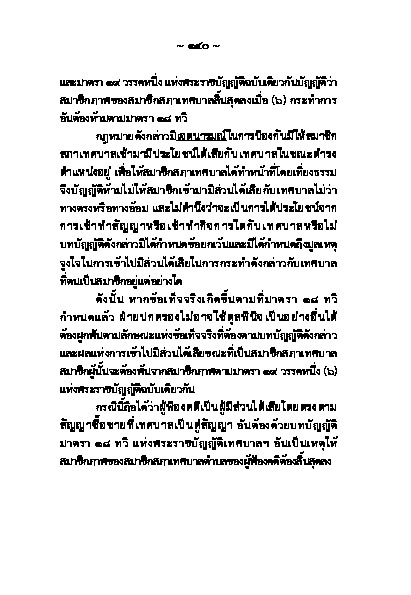 ~ ๑๔๐ ~
และมาตรา ๑๙ วรรคหนึ่ง แห่งพระราชบัญญัติฉบับเดียวกันบัญญัติว่า
สมาชิกภาพของสมาชิกสภาเทศบาลสิ้นสุดลงเมื่อ (๖) กระทำการ
อันต้องห้ามตามมาตรา ๑๘ ทวิ
กฎหมายดังกล่าวมีเจตนารมณ์ในการป้องกันมิให้สมาชิก
สภาเทศบาลเข้ามามีประโยชน์ได้เสียกับเทศบาลในขณะดำรง
ตำแหน่งอยู่ เพื่อให้สมาชิกสภาเทศบาลได้ทำหน้าที่โดยเที่ยงธรรม
จึงบัญญัติห้ามไม่ให้สมาชิกเข้ามามีส่วนได้เสียกับเทศบาลไม่ว่า
ทางตรงหรือทางอ้อม และไม่คำนึงว่าจะเป็นการได้ประโยชน์จาก
การเข้าทำสัญญาหรือเข้าทำกิจการใดกับเทศบาลหรือไม่
บทบัญญัติดังกล่าวมิได้กำหนดข้อยกเว้นและมิได้กำหนดถึงมูลเหตุ
จูงใจในการเข้าไปมีส่วนได้เสียในการกระทำดังกล่าวกับเทศบาล
ที่ตนเป็นสมาชิกอยู่แต่อย่างใด
ดังนั้น หากข้อเท็จจริงเกิดขึ้นตามที่มาตรา ๑๘ ทวิ
กำหนดแล้ว ฝ่ายปกครองไม่อาจใช้ดุลพินิจเป็นอย่างอื่นได้
ต้องผูกพันตามลักษณะแห่งข้อเท็จจริงที่ต้องตามบทบัญญัติดังกล่าว
และผลแห่งการเข้าไปมีส่วนได้เสียขณะที่เป็นสมาชิกสภาเทศบาล
สมาชิกผู้นั้นจะต้องพ้นจากสมาชิกภาพตามมาตรา ๑๙ วรรคหนึ่ง (๖)
แห่งพระราชบัญญัติฉบับเดียวกัน
กรณีนี้ถือได้ว่าผู้ฟ้องคดีเป็นผู้มีส่วนได้เสียโดยตรงตาม
สัญญาซื้อขายที่เทศบาลเป็นคู่สัญญา อันต้องด้วยบทบัญญัติ
มาตรา ๑๘ ทวิ แห่งพระราชบัญญัติเทศบาลฯ อันเป็นเหตุให้
สมาชิกภาพของสมาชิกสภาเทศบาลตำบลของผู้ฟ้องคดีต้องสิ้นสุดลง